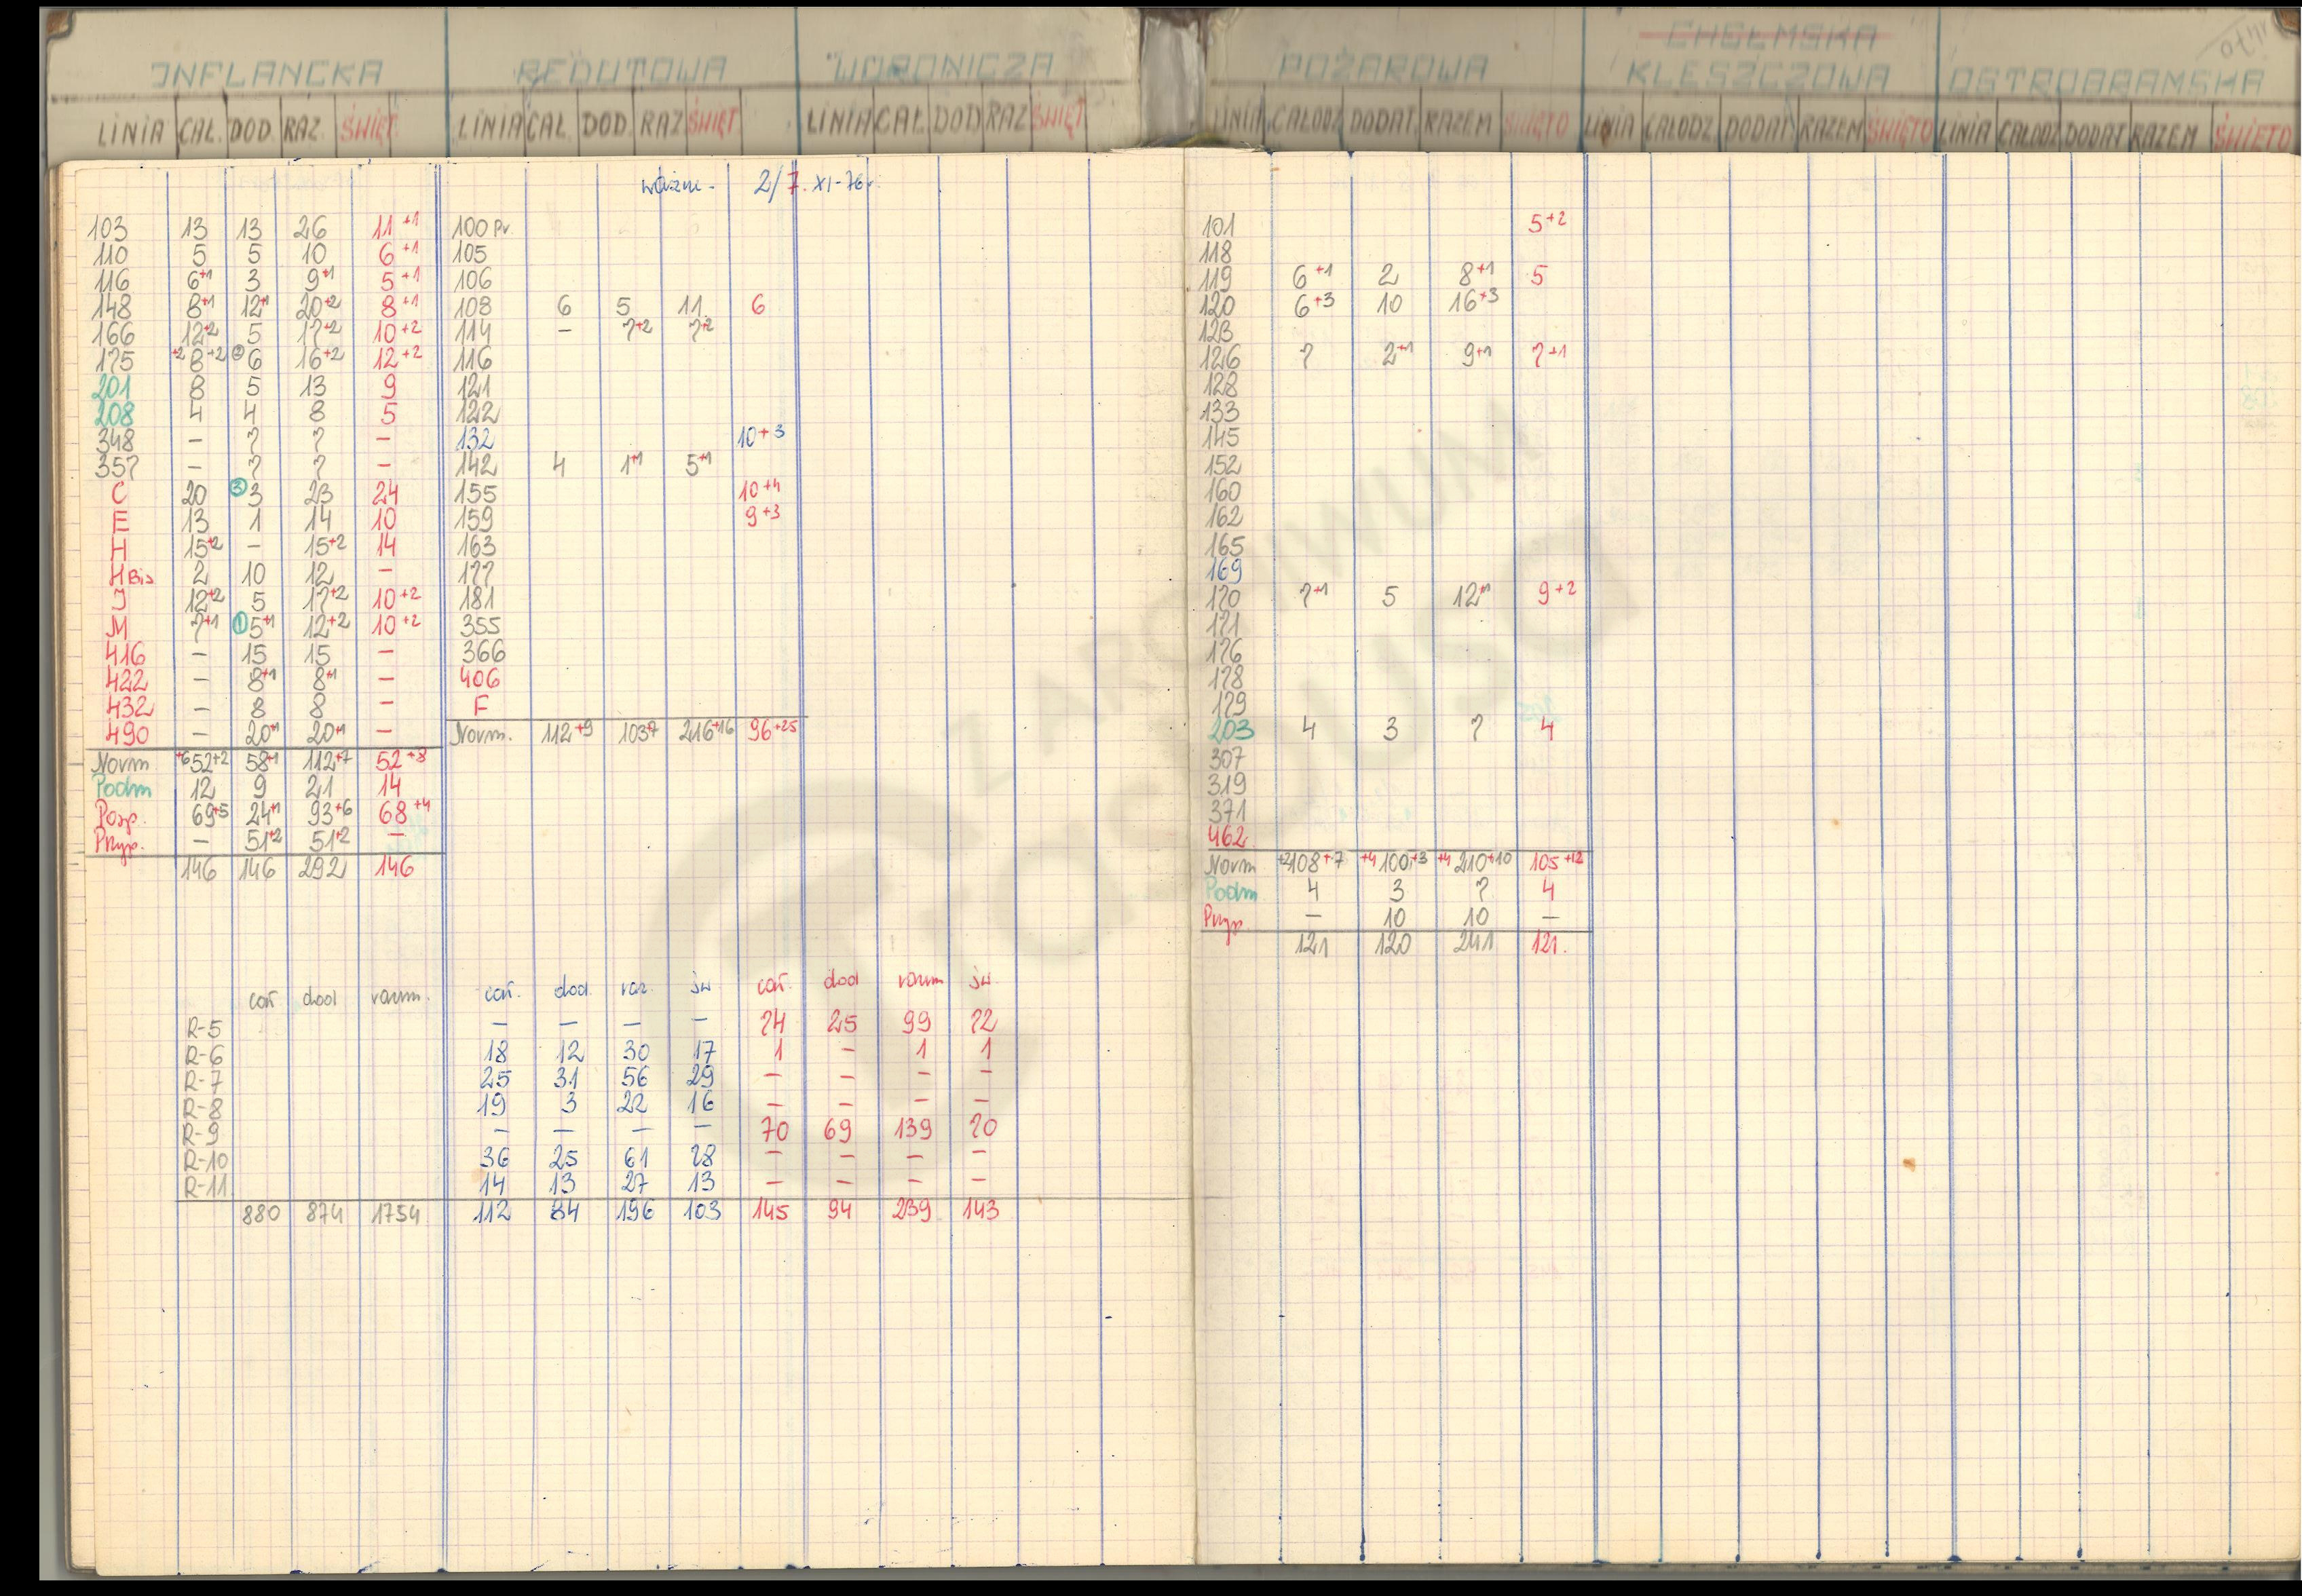 INFLANCKA REDUTOWA WORONICZA POŻAROWA CHEŁMSKA KLESZCZOWA OSTROBRAMSKA
LINIA CAŁ. DOD. RAZ. ŚWIĘT. LINIA CAŁ. DOD. RAZ ŚWIĘT LINIA CAŁ. DOD RAZ ŚWIĘT LINIA CAŁODZ DODAT. RAZEM ŚWIĘTO LINIA CAŁODZ. DODAT. RAZEM ŚWIĘTO LINIA CAŁODZ. DODAT RAZEM ŚWIĘTO
ważne - 2/7. XI-76r.
103 13 13 26 11+1
110 5 5 10 6+1
116 6+1 3 9+1 5+1
148 8+1 12+1 20+2 8+1
166 12+2 5 17+2 10+2
175 +2 8+2 ② 6 16+2 12+2
201 8 5 13 9
208 4 4 8 5
348 – 7 7 –
357 – 7 7 –
C 20 ③ 3 23 24
E 13 1 14 10
H 15+2 – 15+2 14
H Bis 2 10 12 –
J 12+2 5 17+2 10+2
M 7+1 ① 5+1 12+2 10+2
416 – 15 15 –
422 – 8+1 8+1 –
432 – 8 8 –
490 – 20+1 20+1 –
Norm +6 52+2 58+1 112+7 52+8
Podm 12 9 21 14
Posp. 69+5 24+1 93+6 68+4
Przysp. – 51+2 51+2 –
146 146 292 146
100 Pr.
105
106
108 6 5 11 6
114 – 7+2 7+2
116
121
122
132 10+3
142 4 1+1 5+1
155 10+4
159 9+3
163
177
181
355
366
406
F
Norm. 112+9 103+7 216+16 96+25
101 5+2
118
119 6+1 2 8+1 5
120 6+3 10 16+3
123
126 7 2+1 9+1 7+1
128
133
145
152
160
162
165
169
170 7+1 5 12+1 9+2
171
176
178
179
203 4 3 7 4
307
319
371
462
Norm +2 108+7 +4 100+3 +4 210+10 105+12
Podm 4 3 7 4
Przysp. – 10 10 –
121 120 241 121.
cał dod razem. cał. dod. raz. św cał. dod razem św.
R-5 – – – – 74 25 99 72
R-6 18 12 30 17 1 – 1 1
R-7 25 31 56 29 – – – –
R-8 19 3 22 16 – – – –
R-9 – – – – 70 69 139 70
R-10 36 25 61 28 – – – –
R-11 14 13 27 13 – – – –
880 874 1754 112 84 196 103 145 94 239 143